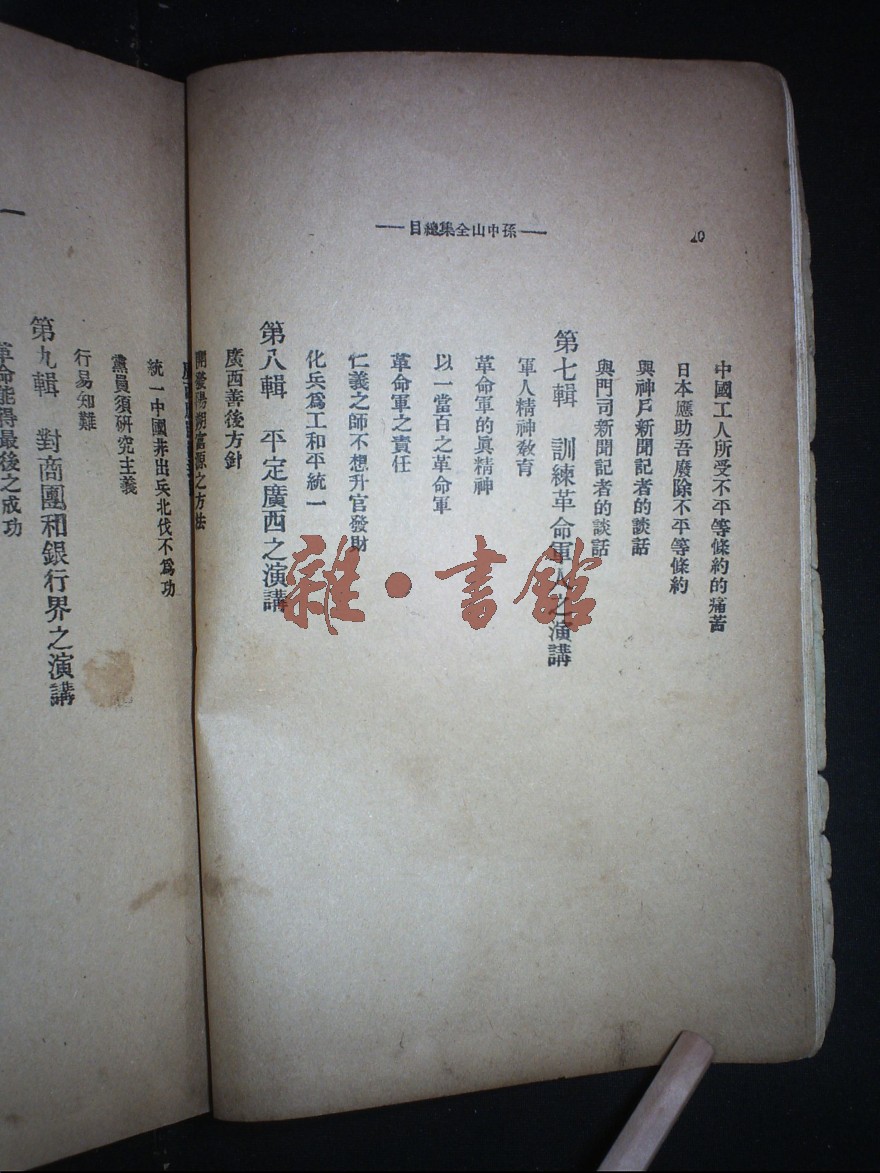 20
——孫中山全集總目——
中國工人所受不平等條約的痛苦
日本應助吾廢除不平等條約
與神戶新聞記者的談話
與門司新聞記者的談話
第七輯 訓練革命軍人之演講
軍人精神敎育
革命軍的眞精神
以一當百之革命軍
革命軍之責任
仁義之師不想升官發財
化兵爲工和平統一
第八輯 平定廣西之演講
廣西善後方針
開發陽朔富源之方法
統一中國非出兵北伐不爲功
黨員須研究主義
行易知難
第九輯 對商團和銀行界之演講
革命能得最後之成功
雜·書館